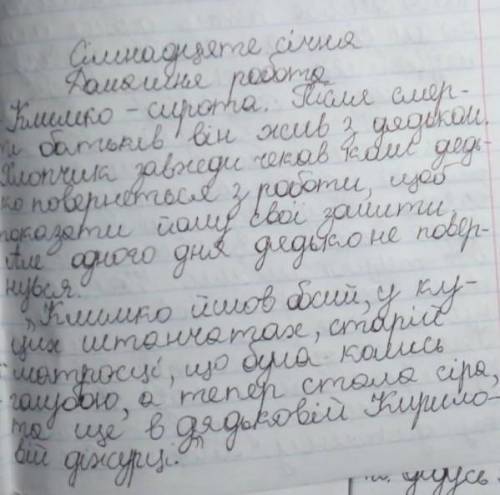 Сімнадцяте січня
Домашня робота
Климко - сирота. Після смер-
ти батьків він жив з дядьком.
Хлопчик завжди чекав коли дядь-
ко повернеться з роботи, щоб
показати йому свої зошити,
Але одного дня дядько не повер-
нувся.
„Климко йшов босий, у ку-
цих штанчатах, старій
матросці, що була колись
голубою, а тепер стала сіра,
та ще в дядьковій Кирило-
вій діжурці."
дідусь